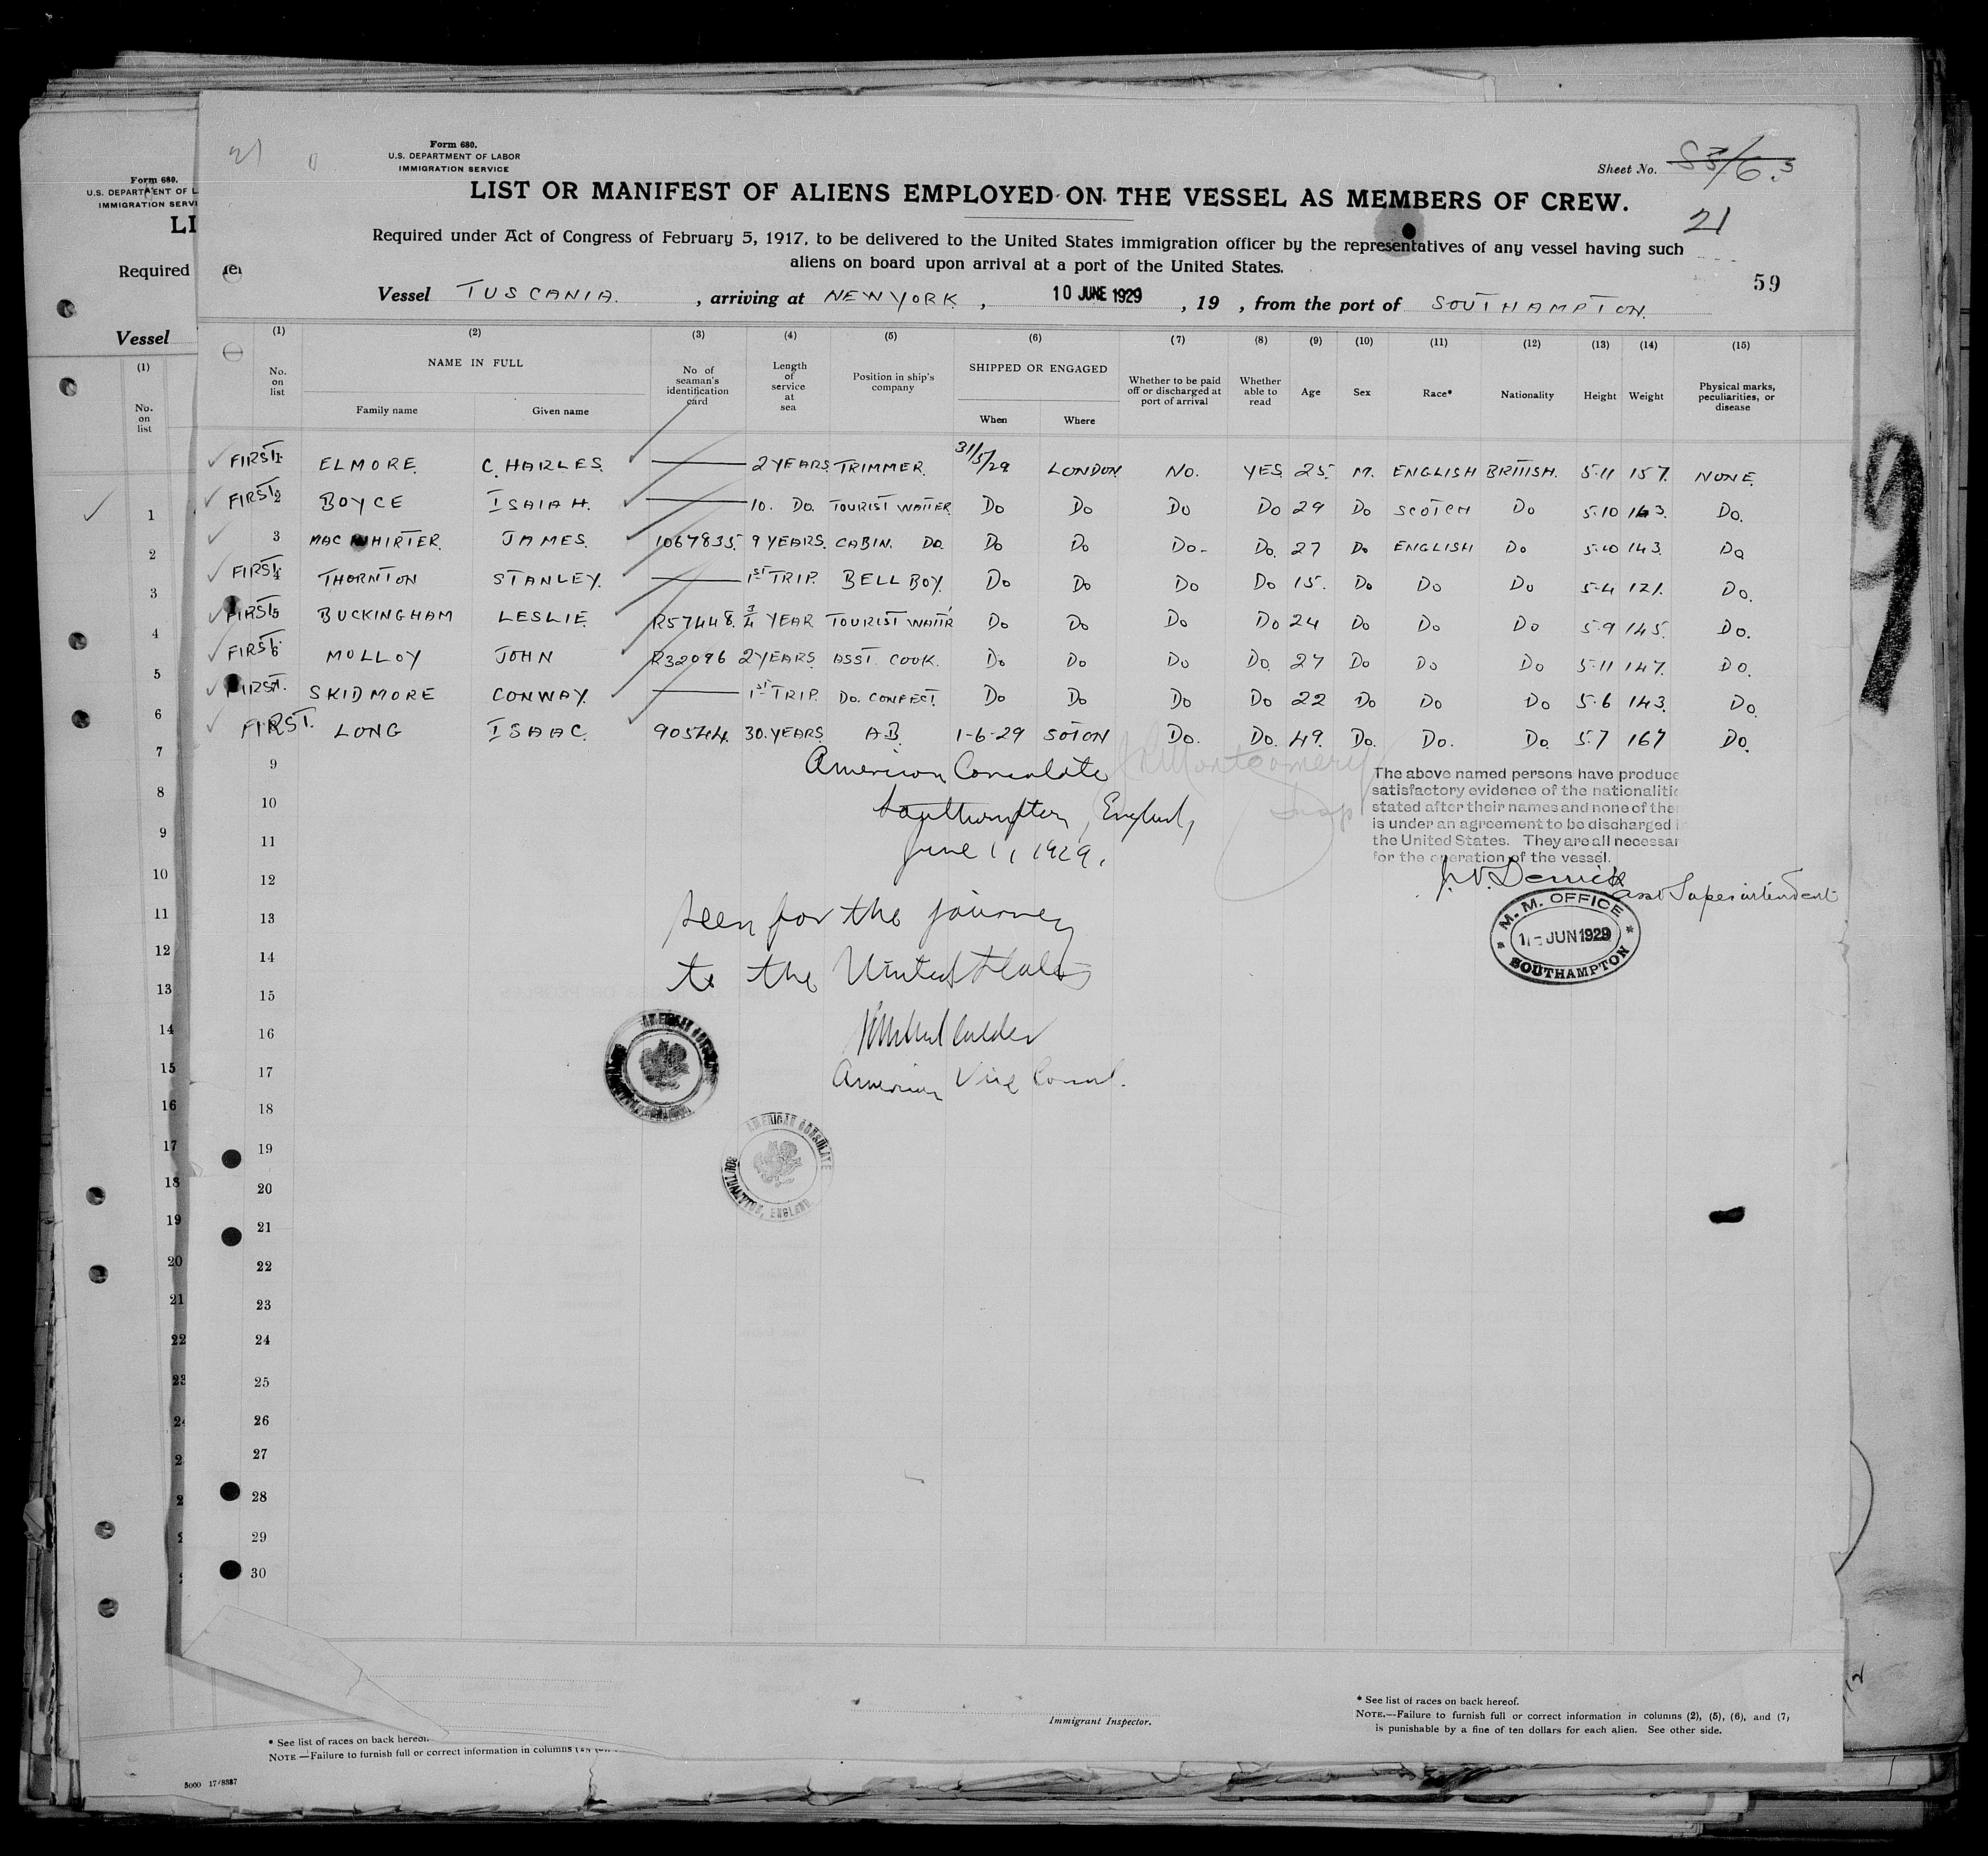 21
Form 680.
U.S. DEPARTMENT OF LABOR
IMMIGRATION SERVICE
Sheet No.
21
59
LIST OR MANIFEST OF ALIENS EMPLOYED ON THE VESSEL AS MEMBERS OF CREW.
Required under Act of Congress of February 5, 1917, to be delivered to the United States immigration officer by the representatives of any vessel having such
aliens on board upon arrival at a port of the United States.
Vessel TUSCANIA. , arriving at NEW YORK , 10 JUNE 1929 , 19 , from the port of SOUTHAMPTON.
(1) (2) (3) (4) (5) (6) (7) (8) (9) (10) (11) (12) (13) (14) (15)
No. on list NAME IN FULL Family name Given name No of seaman's identification card Length of service at sea Position in ship's company SHIPPED OR ENGAGED When Where Whether to be paid off or discharged at port of arrival Whether able to read Age Sex Race* Nationality Height Weight Physical marks, peculiarities, or disease
FIRST 1 ELMORE. CHARLES. 2 YEARS. TRIMMER. 31/5/29 LONDON No. YES. 25. M. ENGLISH BRITISH. 5-11 157. NONE.
FIRST 2 BOYCE ISAIAH. 10. Do. TOURIST WAITER Do Do Do Do 29 Do SCOTCH Do 5-10 163. Do.
3 MAC WHIRTER. JAMES. 1067835. 9 YEARS. CABIN. Do. Do Do Do- Do. 27 Do ENGLISH Do 5-10 143. Do
FIRST 4 THORNTON STANLEY. 1ST TRIP. BELL BOY. Do Do Do Do 15. Do Do Do 5-4 121. Do.
FIRST 5 BUCKINGHAM LESLIE. R57448. 3/4 YEAR TOURIST WAITR Do Do Do Do 24 Do Do Do 5-9 145. Do.
FIRST 6 MOLLOY JOHN R32096 2 YEARS. ASST. COOK. Do Do Do Do. 27 Do Do Do 5-11 147. Do.
FIRST. SKIDMORE CONWAY. 1ST TRIP. Do. CONFECT. Do Do Do Do 22 Do Do Do 5-6 143. Do.
FIRST. LONG ISAAC. 90544. 30. YEARS. A.B. 1-6-29 SOTON Do. Do. 49. Do. Do. Do. 5-7 167 Do.
9
10
11
12
13
14
15
16
17
18
19
20
21
22
23
24
25
26
27
28
29
30
American Consulate
Southampton, England,
June 1, 1929.
Seen for the journey
to the United States
American Vice Consul.
AMERICAN CONSULATE
SOUTHAMPTON, ENGLAND.
J. Montgomery
The above named persons have produce
satisfactory evidence of the nationalitie
stated after their names and none of the
is under an agreement to be discharged i
the United States. They are all necessar
for the operation of the vessel.
J. V. Derrick
Asst Superintendent
M. M. OFFICE
1 - JUN 1929
SOUTHAMPTON
Immigrant Inspector.
* See list of races on back hereof.
NOTE.—Failure to furnish full or correct information in columns (2), (5), (6), and (7)
is punishable by a fine of ten dollars for each alien. See other side.
Form 680.
U.S. DEPARTMENT OF L
IMMIGRATION SERVI
LI
Required
Vessel
(1)
No. on list
1
2
3
4
5
6
7
8
9
10
11
12
13
14
15
16
17
18
19
20
21
22
23
* See list of races on back hereof.
NOTE —Failure to furnish full or correct information in columns
5000 17/8337